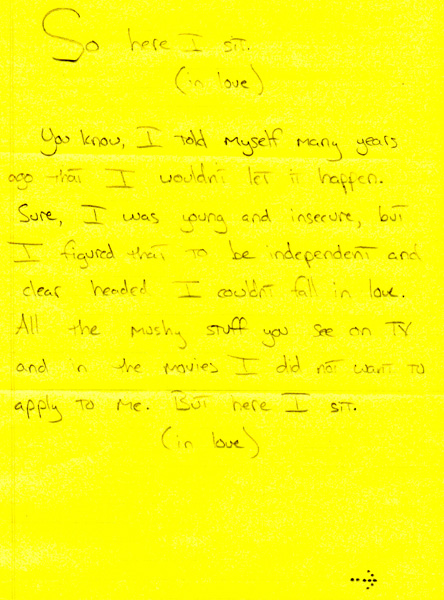 So here I sit.
(in love)
You know, I told myself many years
ago that I wouldn't let it happen.
Sure, I was young and insecure, but
I figured that to be independent and
clear headed I couldn't fall in love.
All the mushy stuff you see on TV
and in the movies I did not want to
apply to me. But here I sit.
(in love)